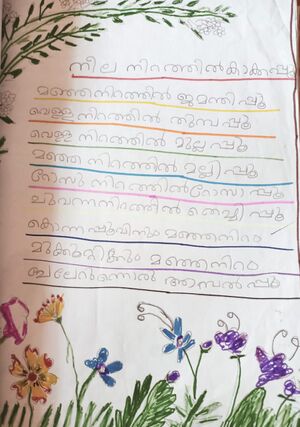 നീല നിറത്തിൽ കാക്കപ്പൂ
മഞ്ഞനിറത്തിൽ ജമന്തി പ്പൂ
വെള്ള നിറത്തിൽ തുമ്പ പ്പൂ
വെള്ള നിറത്തിൽ മുല്ല പ്പൂ
മഞ്ഞ നിറത്തിൽ മല്ലി പ്പൂ
റോസു നിറത്തിൽ റോസാ പ്പൂ
ചുവന്നനിറത്തിൽ തെച്ചി പ്പൂ
കൊന്ന പ്പൂവിനും മഞ്ഞനിറം
മഞ്ഞനിറം
ആമ്പൽ പ്പൂ